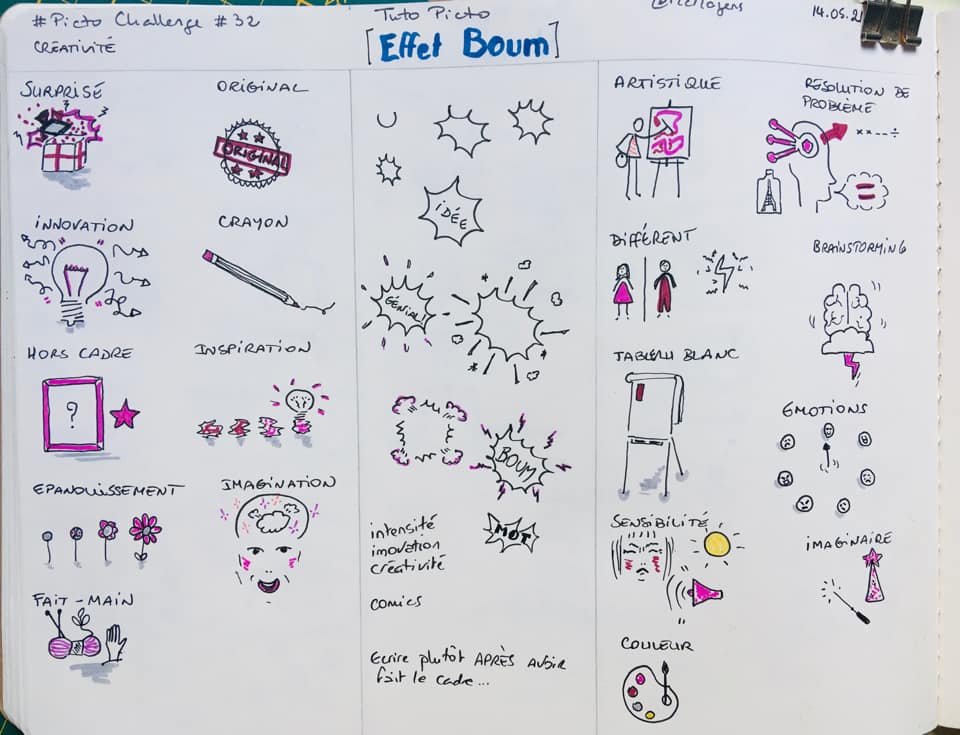 # Picto Challenge # 32
CRÉATIVITÉ
Tuto Picto
[Effet Boum]
SURPRISE
ORIGINAL
ORIGINAL
INNOVATION
CRAYON
HORS CADRE
?
INSPIRATION
EPANOUISSEMENT
IMAGINATION
FAIT-MAIN
iDÉE
GÉNIAL
BOUM
MOT
intensité
imovation
créativité
comics
Ecrire plutôt APRÈS AVOIR
fait le cadre...
ARTISTIQUE
RÉSOLUTION DE
PROBLÈME
x x - - ÷
=
DIFFÉRENT
BRAINSTORMING
TABLEAU BLANC
ÉMOTIONS
SENSIBILITÉ
IMAGINAIRE
COULEUR